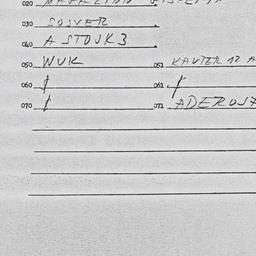 020
030 SOSVER
040 A STOUK 3
050 WUK 051 KAUTER 12 A
060 / 061 /
070 / 071 ADEROSA